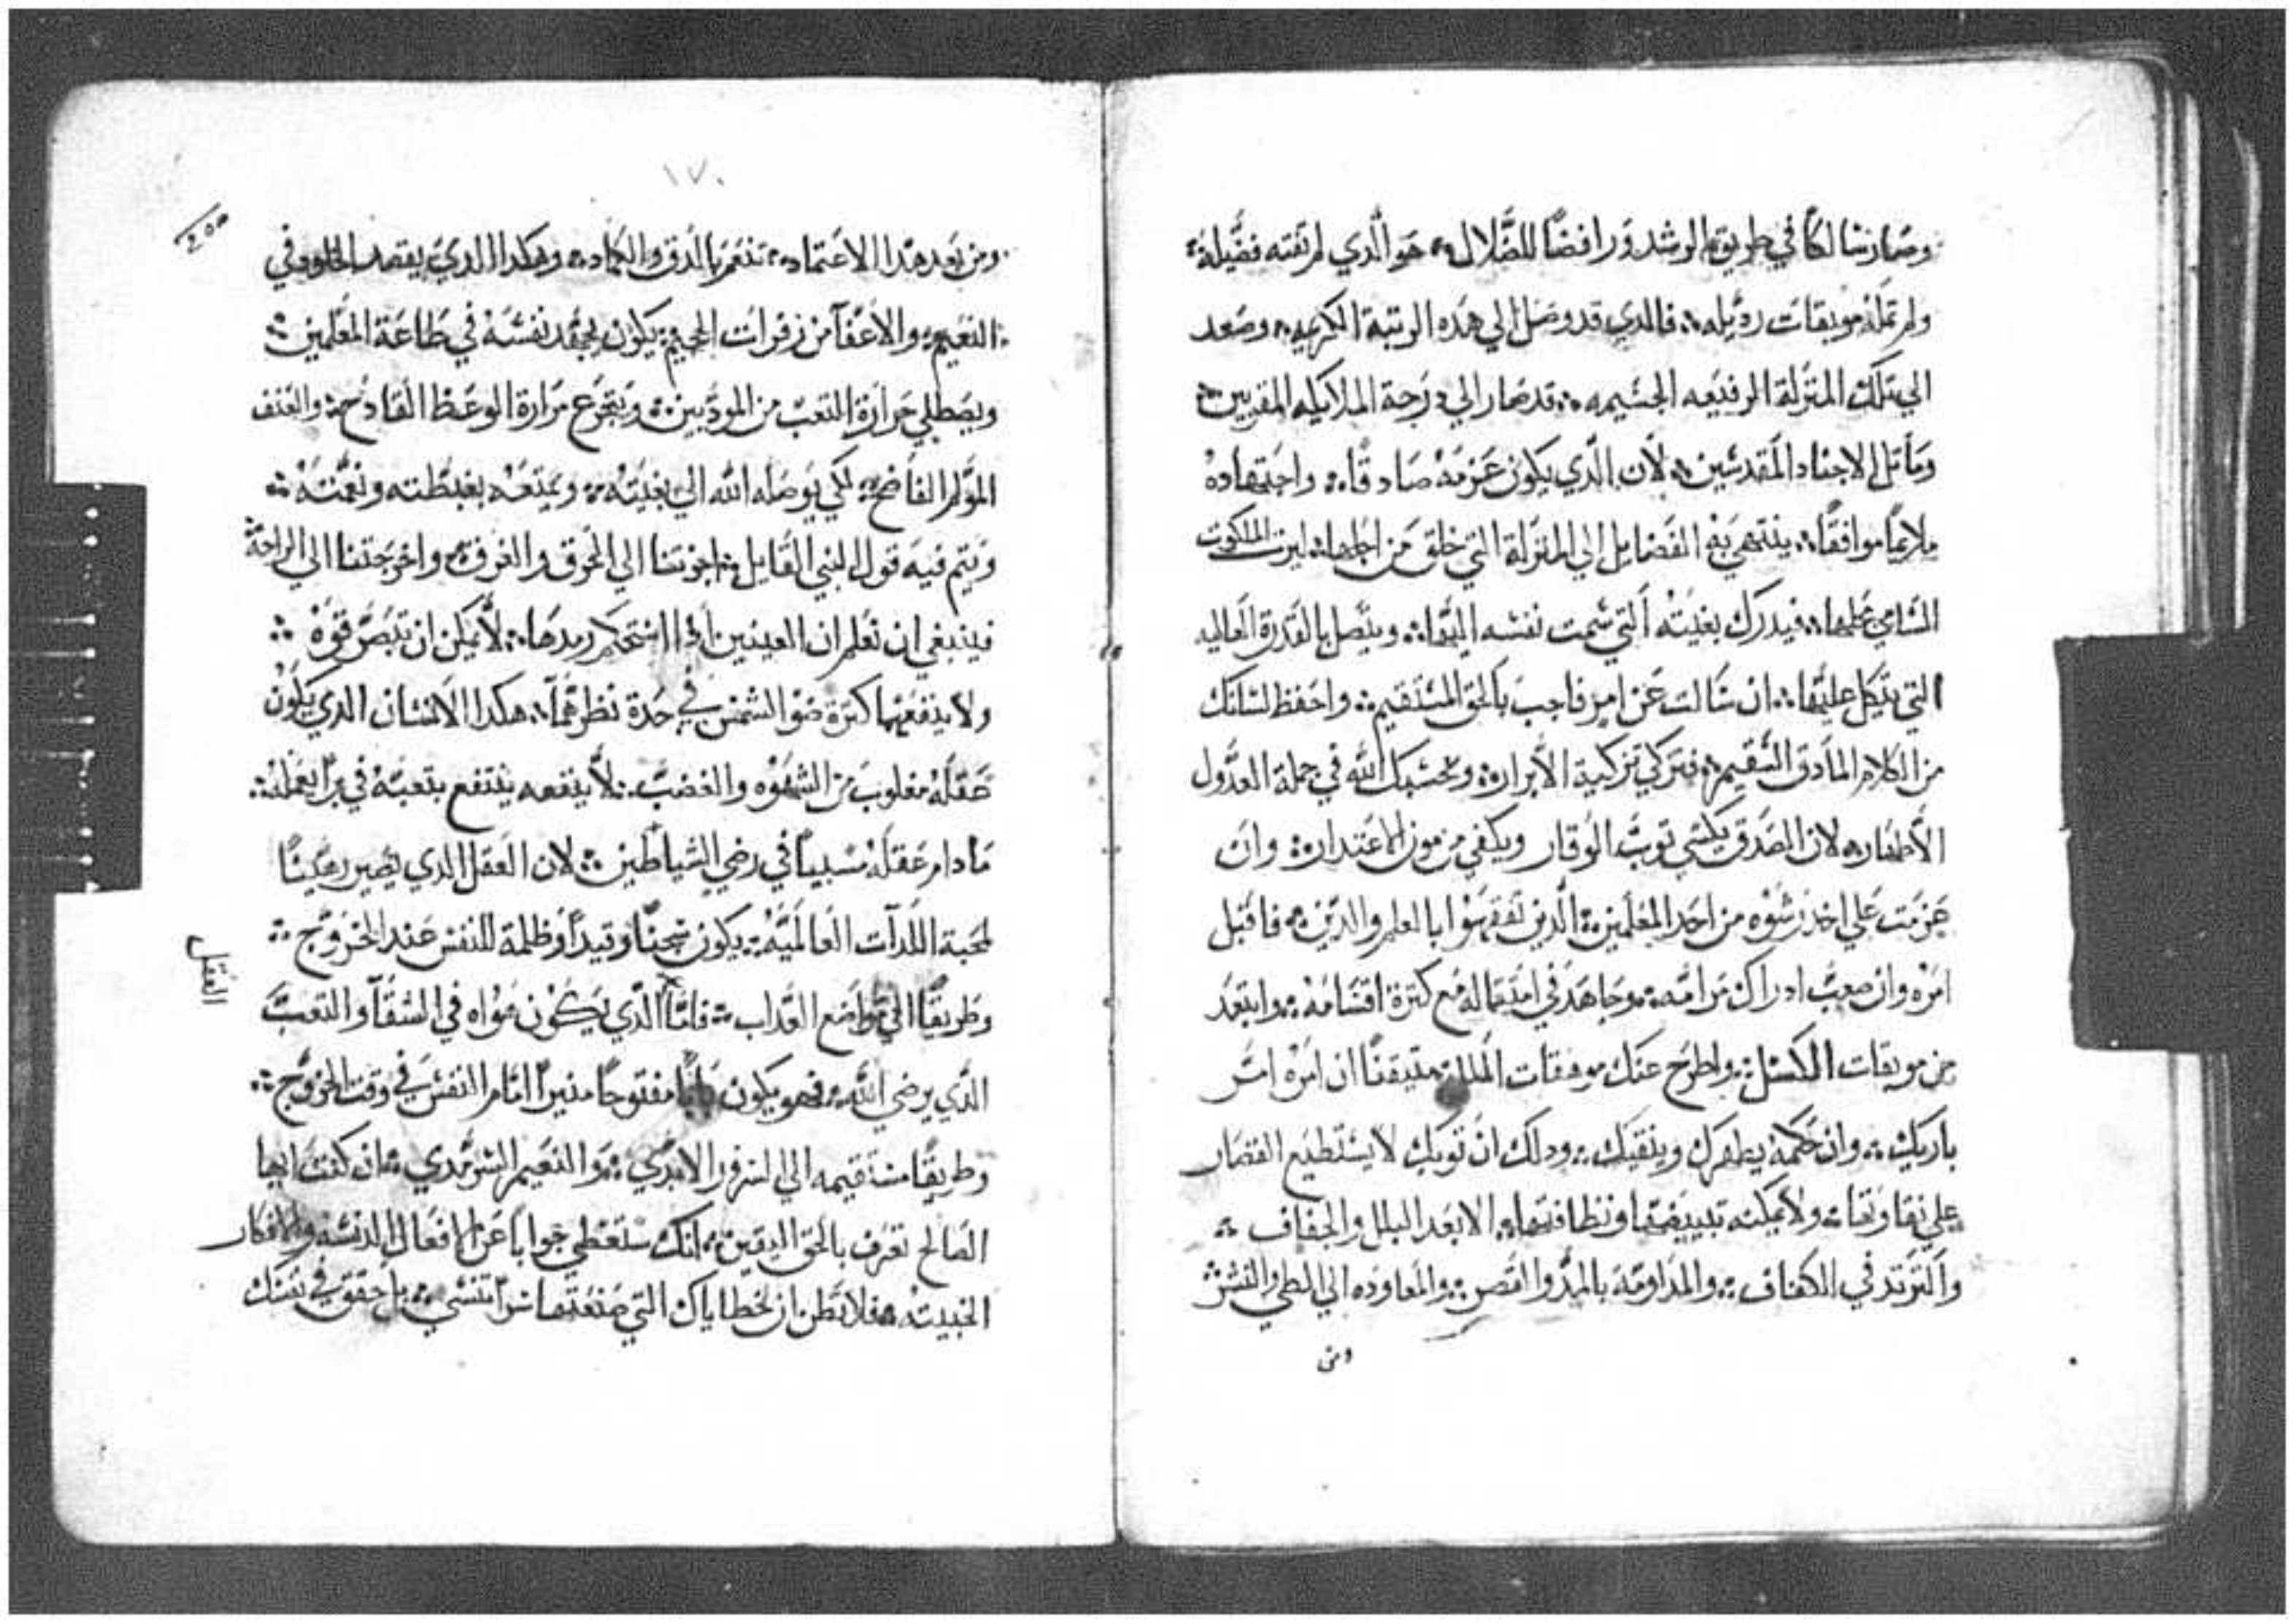 وصار سالكًا في طريق الرشد ورافضًا للضلال ۞ هو الدي لم تفته فضيلة
ولم تمله موبقات رديله ۞ فالدي قد وصل الي هده الرتبة الكريمه ۞ وصعد
الي تلك المنزلة الرفيعه الجسيمه ۞ قد صار الي درجة الملايكه المقربين
وماتل الاجناد المقدسين ۞ لان الدي يكون عزمه صادقًا ۞ واجتهاده
ملايمًا موافقًا ۞ ينتهي به الفضايل الي المنزلة التي خلق من اجلها ۞ ليرت الملكوت
السامي علها ۞ فيدرك بغيته التي سمت نفسه اليها ۞ ويتصل بالقدرة العاليه
التي يتكل عليها ۞ ان سالت عن امر فاجب بالحق المستقيم ۞ واحفظ لسانك
من الكلام المادق السقيم ۞ فتزكي تزكية الأبرار ۞ ويحسبك الله في جملة العدول
الأطهار ۞ لان الصدق يكسي توب الوقار ويكفي من مون الاعتدار ۞ وان
عزمت علي اخد رشوه من احد المعلمين ۞ الدين تفقهوا بالعلم والدين ۞ فاقبل
امره وان صعب ادراك مرامه ۞ وجاهد في امتتاله مع كترة اقسامه ۞ وابتعد
من موبقات الكسل ۞ واطرح عنك موهقات الملل ۞ متيقنًا ان امره امر
باريك ۞ وان حكمه يطهرك وينقيك ۞ ودلك ان توبك لا يستطيع القصار
علي نقاوتها ۞ ولا يمكنه تبييضها ونظافتها ۞ الا بعد البلل والجفاف ۞
والتردد في الكفاف ۞ والمداومة بالمد والقص ۞ والمعاوده الي الطي والنشر
ومن
١٧٠
٢٥٥
ومن بعد هدا الاعتماد ۞ تنعم بالدق والكماد ۞ وهكدا الدي يقصد الخلود في
النعيم ۞ والاعفآ من زفرات الجحيم ۞ يكون يجهد نفسه في طاعة المعلمين ۞
ويصطلي حرارة التعب من المودبين ۞ ويتجرع مرارة الوعظ القادح ۞ والعنف
المولم الفاضح ۞ لكي يوصله الله الي بغيته ۞ ويمتعه بغبطته ونعمته ۞
ويتم فيه قول النبي القايل ۞ اجزتنا الي الحرق والغرق ۞ واخرجتنا الي الراحة
فينبغي ان تعلم ان العينين ادا استحكم رمدها ۞ لا يمكن ان تبصر قوة ۞
ولا ينفعهما كترة ضو الشمس في حدة نظرهما ۞ هكدا الانسان الدي يكون
عقله مغلوب من الشهوه والغضب ۞ لا ينفعه ينتفع بتعبه في بر يعمله ۞
ما دام عقله مسبيًا في رضي الشياطين ۞ لان العقل الدي يصير رهينًا
لمحبة اللدآت العالميه ۞ يكون سجنًا وقيدًا وظلمة للنفس عند الخروج ۞
وطريقًا الي مواضع العداب ۞ فاما الدي يكون هواه في الشقآ والتعب
العقل
الدي يرضي الله ۞ فهو يكون بابًا مفتوحًا منيرًا امام النفس في وقت الخروج ۞
وطريقًا مستقيمه الي السرور الابدي ۞ والنعيم السرمدي ۞ ان كنت ايها
الصالح تعرف بالحق اليقين ۞ انك ستعطي جوابًا عن الافعال الدنسه والافكار
الخبيته ۞ فلا تظن ان لخطاياك التي صنعتها سرًا تنسي ۞ بل حقق في نفسك